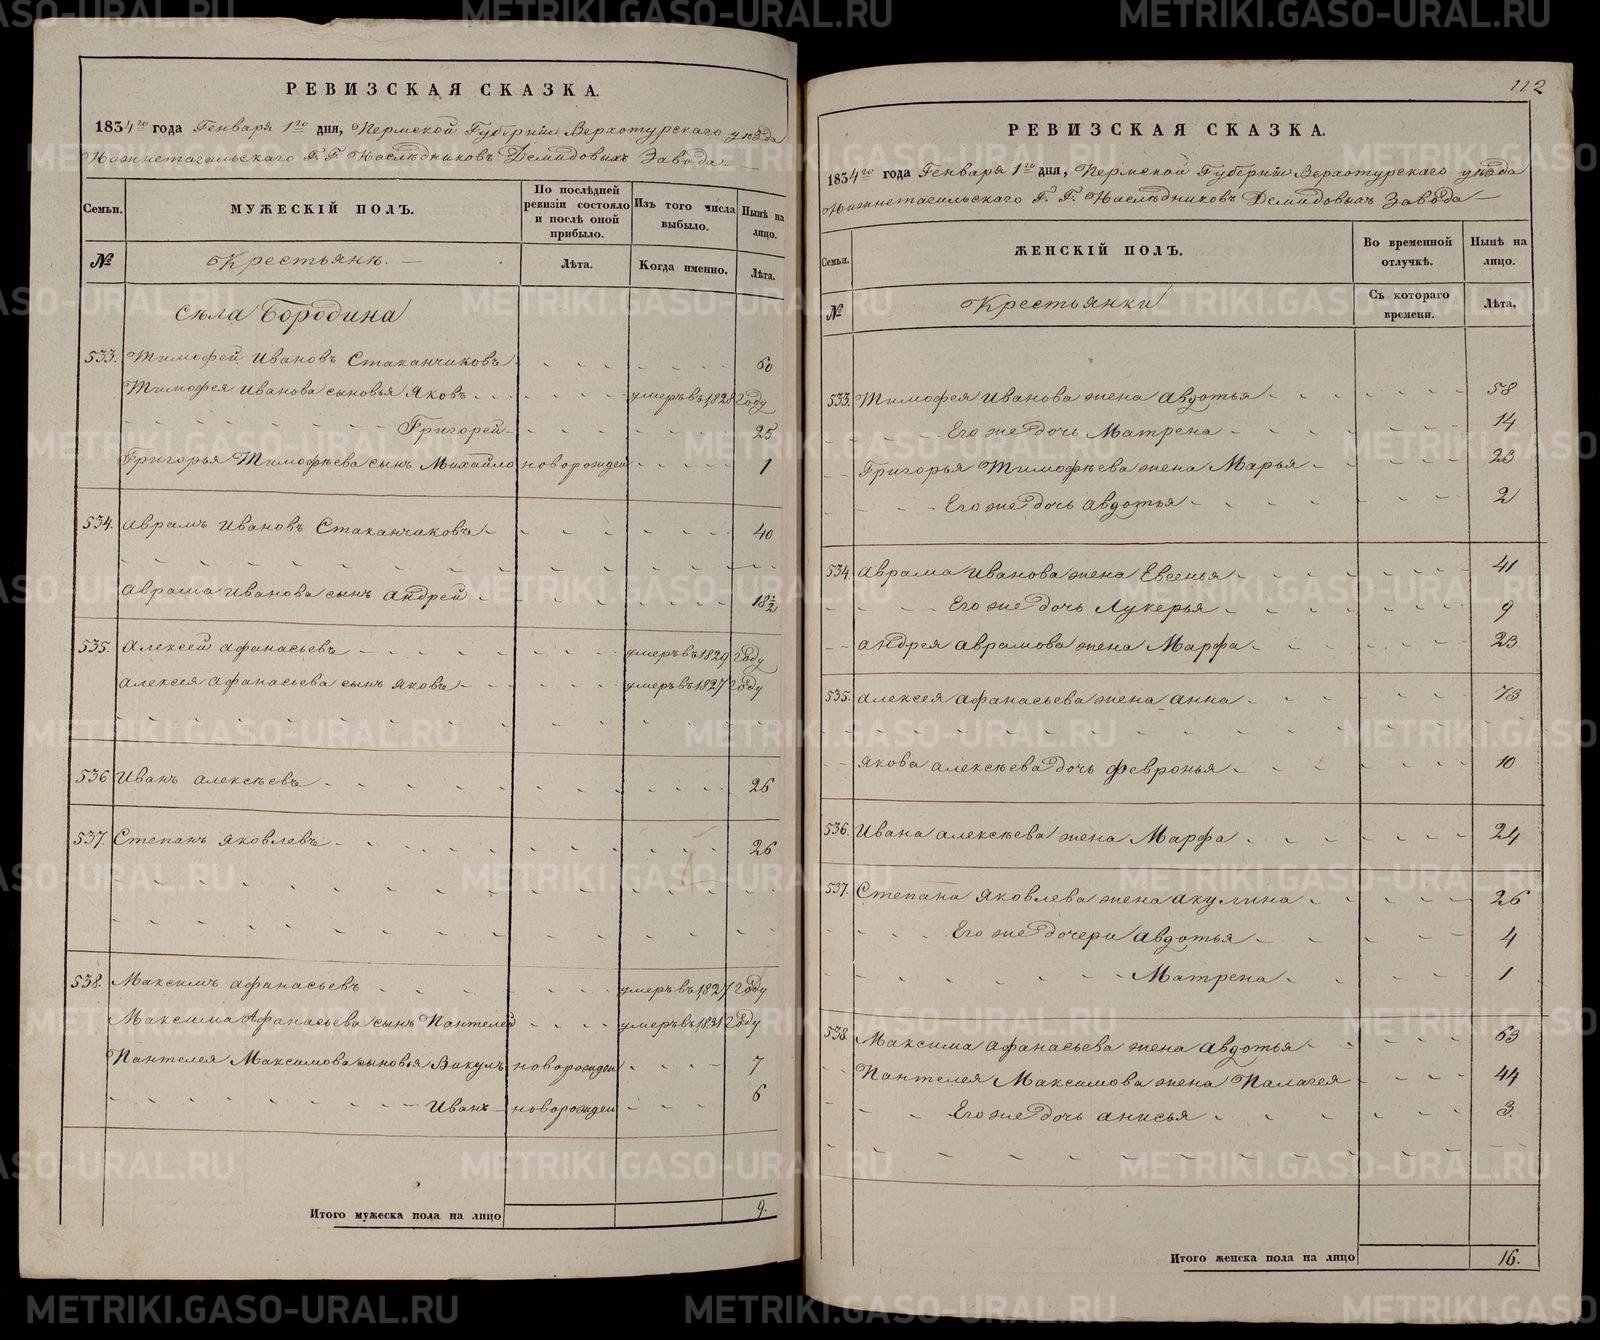 РЕВИЗСКАЯ СКАЗКА.
1834го года Генваря 1го дня, Пермской Губернiи Верхотурскаго уѣзда
Нижнетагильскаго Г. Г. Наслѣдниковъ Демидовыхъ Завода
Семьи.
МУЖЕСКІЙ ПОЛЪ.
По послѣдней ревизіи состояло и послѣ оной прибыло.
Изъ того числа выбыло.
Нынѣ на лицо.
№
Крестьянѣ.
Лѣта.
Когда именно.
Лѣта.
Сѣла Бородина
533. Тимофей Ивановъ Стаканчиковъ 60
Тимофея Иванова сыновья Яковъ умеръ въ 1828 году
Григорей 25
Григорья Тимофѣева сынъ Михайло новорожден 1
534. Аврамъ Ивановъ Стаканчиковъ 40
Аврама Иванова сынъ Андрей 18½
535. Алексей Афанасьевъ умеръ въ 1829 году
Алексея Афанасьева сынъ Яковъ умеръ въ 1827 году
536 Иванъ Алексѣевъ 26
537. Степанъ Яковлевъ 26
538. Максимъ Афанасьевъ умеръ въ 1827 году
Максима Афанасьева сынъ Пантелей умеръ въ 1831 году
Пантелея Максимова сыновья Викулъ новорожден 7
Иванъ новорожден 6
Итого мужеска пола на лицо 9.
112
РЕВИЗСКАЯ СКАЗКА.
1834го года Генваря 1го дня, Пермской Губернiи Верхотурскаго уѣзда
Нижнетагильскаго Г. Г. Наслѣдниковъ Демидовыхъ Завода
Семьи.
ЖЕНСКІЙ ПОЛЪ.
Во временной отлучкѣ.
Нынѣ на лицо.
№
Крестьянки
Съ котораго времени.
Лѣта.
533. Тимофея Иванова жена Авдотья 58
Его же дочь Матрена 14
Григорья Тимофѣева жена Марья 23
Его же дочь Авдотья 2
534. Аврама Иванова жена Евсенья 41
Его же дочь Лукерья 9
Андрея Аврамова жена Марфа 23
535. Алексея Афанасьева жена Анна 73
Якова Алексѣева дочь Февронья 10
536. Ивана Алексѣева жена Марфа 24
537. Степана Яковлева жена Акулина 26
Его же дочери Авдотья 4
Матрена 1
538. Максима Афанасьева жена Авдотья 63
Пантелея Максимова жена Палагея 44
Его же дочь Анисья 3
Итого женска пола на лицо 16.
METRIKI.GASO-URAL.RU